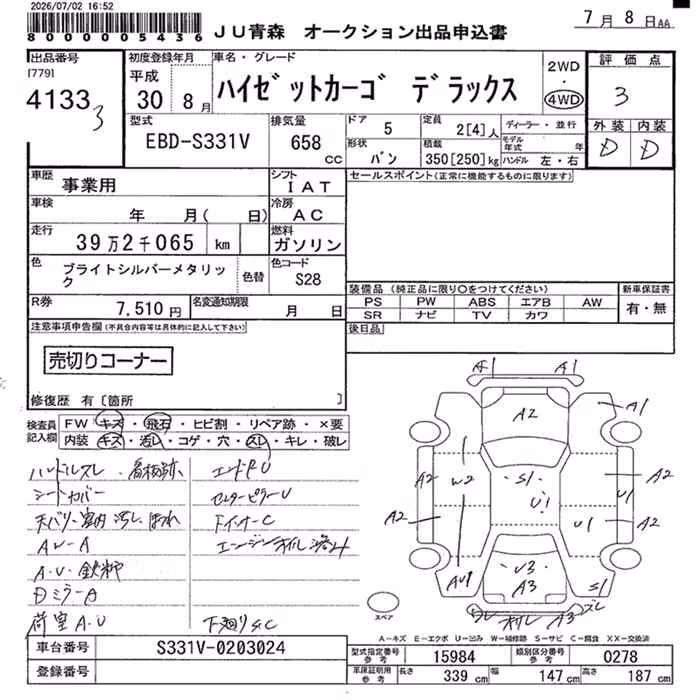 2026/07/02 16:52
800000005436
JU青森 オークション出品申込書
7月 8日AA
出品番号
[779]
4133
3
初度登録年月
平成
30 8月
車名・グレード
ハイゼットカーゴ デラックス
2WD
・
4WD
評価点
3
外装 内装
D D
型式
EBD-S331V
排気量
658
CC
ドア
5
形状
バン
定員
2[4]人
積載
350[250]kg
ディーラー・並行
モデル
年式 年
ハンドル 左・右
車歴
事業用
シフト
IAT
車検
年 月( 日)
冷房
AC
走行
39万2千065 km
燃料
ガソリン
色
ブライトシルバーメタリック
色替
色コード
S28
R券
7,510円
名変通知期限
月 日
セールスポイント(正常に機能するものに限ります)
装備品 (純正品に限り〇をつけてください)
PS PW ABS エアB AW
SR ナビ TV カワ
新車保証書
有・無
後日品
注意事項申告欄(不具合内容等は具体的に記入して下さい)
売切りコーナー
修復歴 有〔箇所 〕
検査員
記入欄
FW キズ・飛石・ヒビ割・リペア跡・×要
内装 キズ・汚レ・コゲ・穴・スレ・キレ・破レ
ハンドルスレ
シートカバー
天バリ・室内汚レ
Aピラー
Dミラー
荷室A・U
エンドPU
センターピラーU
ドインナーC
エンジンオイル滲ミ
下廻りS.C
A1 A1
A2
A1
A2 W2 S1 A2
U1 U1
A2 U1 A2
AU1 U3
A3 S1
A3 ズレ
スペア
A-キズ E-エクボ U-凹み W-補修跡 S-サビ C-腐食 XX-交換済
車台番号
S331V-0203024
登録番号
型式指定番号
参考
15984
類別区分番号
参考
0278
車庫証明用
参考
長さ 339 cm 幅 147 cm 高さ 187 cm